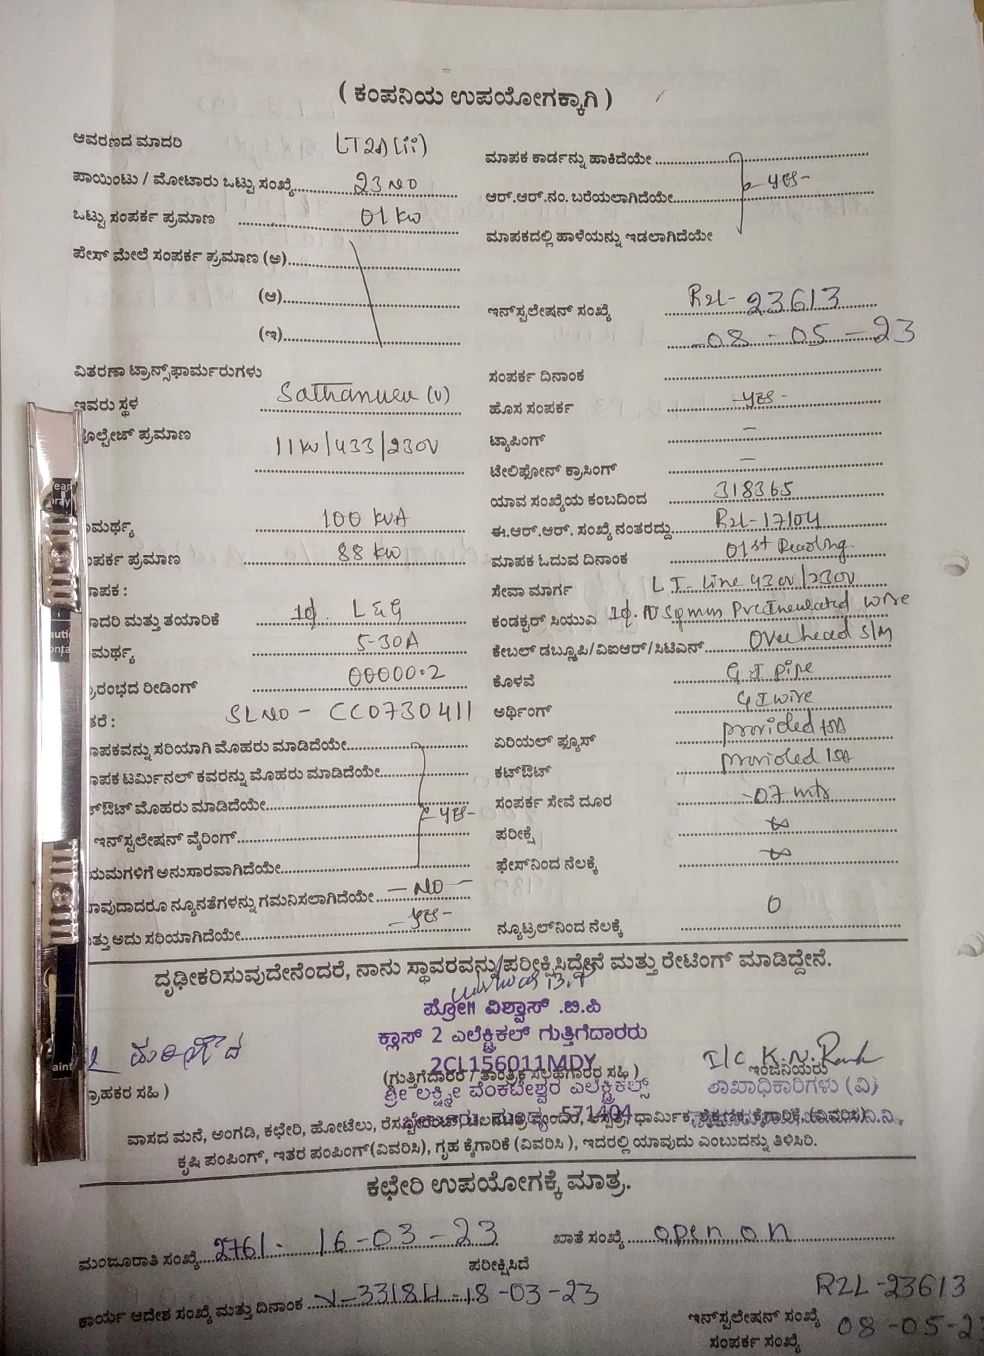 ( ಕಂಪನಿಯ ಉಪಯೋಗಕ್ಕಾಗಿ )
ಆವರಣದ ಮಾದರಿ LT2A(ii)
ಪಾಯಿಂಟು / ಮೋಟಾರು ಒಟ್ಟು ಸಂಖ್ಯೆ 23 NO
ಒಟ್ಟು ಸಂಪರ್ಕ ಪ್ರಮಾಣ 01 KW
ಪೇಸ್ ಮೇಲೆ ಸಂಪರ್ಕ ಪ್ರಮಾಣ (ಅ)
(ಆ)
(ಇ)
ವಿತರಣಾ ಟ್ರಾನ್ಸ್‌ಫಾರ್ಮರುಗಳು
ಇವರು ಸ್ಥಳ Sathanuru (V)
ವೋಲ್ಟೇಜ್ ಪ್ರಮಾಣ 11KV/433/230V
ಮರ್ಥ್ಯ 100 KVA
ಪರ್ಕ ಪ್ರಮಾಣ 88 KW
ಾಪಕ :
ಾದರಿ ಮತ್ತು ತಯಾರಿಕೆ 1ø. L&G
ಮರ್ಥ್ಯ 5-30A
್ರಾರಂಭದ ರೀಡಿಂಗ್ 00000.2
ತರೆ : SL NO - CC0730411
ಾಪಕವನ್ನು ಸರಿಯಾಗಿ ಮೊಹರು ಮಾಡಿದೆಯೇ
ಾಪಕ ಟರ್ಮಿನಲ್ ಕವರನ್ನು ಮೊಹರು ಮಾಡಿದೆಯೇ
ಟ್‌ಔಟ್ ಮೊಹರು ಮಾಡಿದೆಯೇ - yes -
ಇನ್‌ಸ್ಟಲೇಷನ್ ವೈರಿಂಗ್
ಯಮಗಳಿಗೆ ಅನುಸಾರವಾಗಿದೆಯೇ
ಾವುದಾದರೂ ನ್ಯೂನತೆಗಳನ್ನು ಗಮನಿಸಲಾಗಿದೆಯೇ - NO -
ತ್ತು ಅದು ಸರಿಯಾಗಿದೆಯೇ - yes -
ಮಾಪಕ ಕಾರ್ಡನ್ನು ಹಾಕಿದೆಯೇ
ಆರ್.ಆರ್.ನಂ. ಬರೆಯಲಾಗಿದೆಯೇ - yes -
ಮಾಪಕದಲ್ಲಿ ಹಾಳೆಯನ್ನು ಇಡಲಾಗಿದೆಯೇ
ಇನ್‌ಸ್ಟಲೇಷನ್ ಸಂಖ್ಯೆ R2L- 23613
08 - 05 - 23
ಸಂಪರ್ಕ ದಿನಾಂಕ
ಹೊಸ ಸಂಪರ್ಕ - yes -
ಟ್ಯಾಪಿಂಗ್ -
ಟೇಲಿಫೋನ್ ಕ್ರಾಸಿಂಗ್ -
ಯಾವ ಸಂಖ್ಯೆಯ ಕಂಬದಿಂದ 318365
ಈ.ಆರ್.ಆರ್. ಸಂಖ್ಯೆ ನಂತರದ್ದು R2L-17104
ಮಾಪಕ ಓದುವ ದಿನಾಂಕ 01st Reading.
ಸೇವಾ ಮಾರ್ಗ L T- Line 430V/230V
ಕಂಡಕ್ಟರ್ ಸಿಯುವಿ 1ø. 10 Sqmm Pre Insulated wire
ಕೇಬಲ್ ಡಬ್ಲೂಪಿ/ವಿಐಆರ್/ಸಿಟಿಎನ್ Over head S/M
ಕೊಳವೆ G I pipe
ಅರ್ಥಿಂಗ್ G I wire
ಏರಿಯಲ್ ಫ್ಯೂಸ್ provided 15A
ಕಟ್‌ಔಟ್ provided 15A
ಸಂಪರ್ಕ ಸೇವೆ ದೂರ - 07 mts
ಪರೀಕ್ಷೆ ∞
ಫೇಸ್‌ನಿಂದ ನೆಲಕ್ಕೆ ∞
ನ್ಯೂಟ್ರಲ್‌ನಿಂದ ನೆಲಕ್ಕೆ 0
ದೃಢೀಕರಿಸುವುದೇನೆಂದರೆ, ನಾನು ಸ್ಥಾವರವನ್ನು ಪರೀಕ್ಷಿಸಿದ್ದೇನೆ ಮತ್ತು ರೇಟಿಂಗ್ ಮಾಡಿದ್ದೇನೆ.
ಪ್ರೋ॥ ವಿಶ್ವಾಸ್ .ಬಿ.ಪಿ
ಕ್ಲಾಸ್ 2 ಎಲೆಕ್ಟ್ರಿಕಲ್ ಗುತ್ತಿಗೆದಾರರು
2CL156011MDY
(ಗುತ್ತಿಗೆದಾರರ / ತಾಂತ್ರಿಕ ಸಲಹಗಾರರ ಸಹಿ )
ಶ್ರೀ ಲಕ್ಷ್ಮೀ ವೆಂಕಟೇಶ್ವರ ಎಲೆಕ್ಟ್ರಿಕಲ್ಸ್
571404
್ರಾಹಕರ ಸಹಿ )
I/C K.N.
ಇಂಜಿನಿಯರು
ಶಾಖಾಧಿಕಾರಿಗಳು (ವಿ)
ವಾಸದ ಮನೆ, ಅಂಗಡಿ, ಕಛೇರಿ, ಹೋಟೆಲು, ಧಾರ್ಮಿಕ, ಶೈಕ್ಷಣಿಕ, ಕೈಗಾರಿಕೆ, (ವಿವರಿಸಿ)
ಕೃಷಿ ಪಂಪಿಂಗ್, ಇತರ ಪಂಪಿಂಗ್(ವಿವರಿಸಿ), ಗೃಹ ಕೈಗಾರಿಕೆ (ವಿವರಿಸಿ ), ಇದರಲ್ಲಿ ಯಾವುದು ಎಂಬುದನ್ನು ತಿಳಿಸಿರಿ.
ಕಛೇರಿ ಉಪಯೋಗಕ್ಕೆ ಮಾತ್ರ.
ಮಂಜೂರಾತಿ ಸಂಖ್ಯೆ 2761 - 16-03-23 ಖಾತೆ ಸಂಖ್ಯೆ open on
ಪರೀಕ್ಷಿಸಿದೆ
ಕಾರ್ಯ ಆದೇಶ ಸಂಖ್ಯೆ ಮತ್ತು ದಿನಾಂಕ 18-03-23
R2L-23613
ಇನ್‌ಸ್ಟಲೇಷನ್ ಸಂಖ್ಯೆ
ಸಂಪರ್ಕ ಸಂಖ್ಯೆ 08-05-23